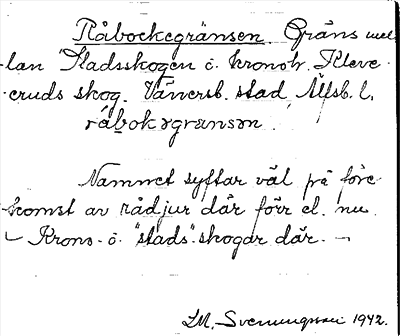 Råbocksgränsen. Gräns mel-
lan "Stadsskogen o. kronotr. Kleve-
eruds skog. Vänersb. stad, Älfsb. l.
råbokgrænsən
Namnet syftar väl på före-
komst av rådjur där förr el. nu
- Krons- o. "stads"-skogar där. -
I.M. Svenungsson 1942.